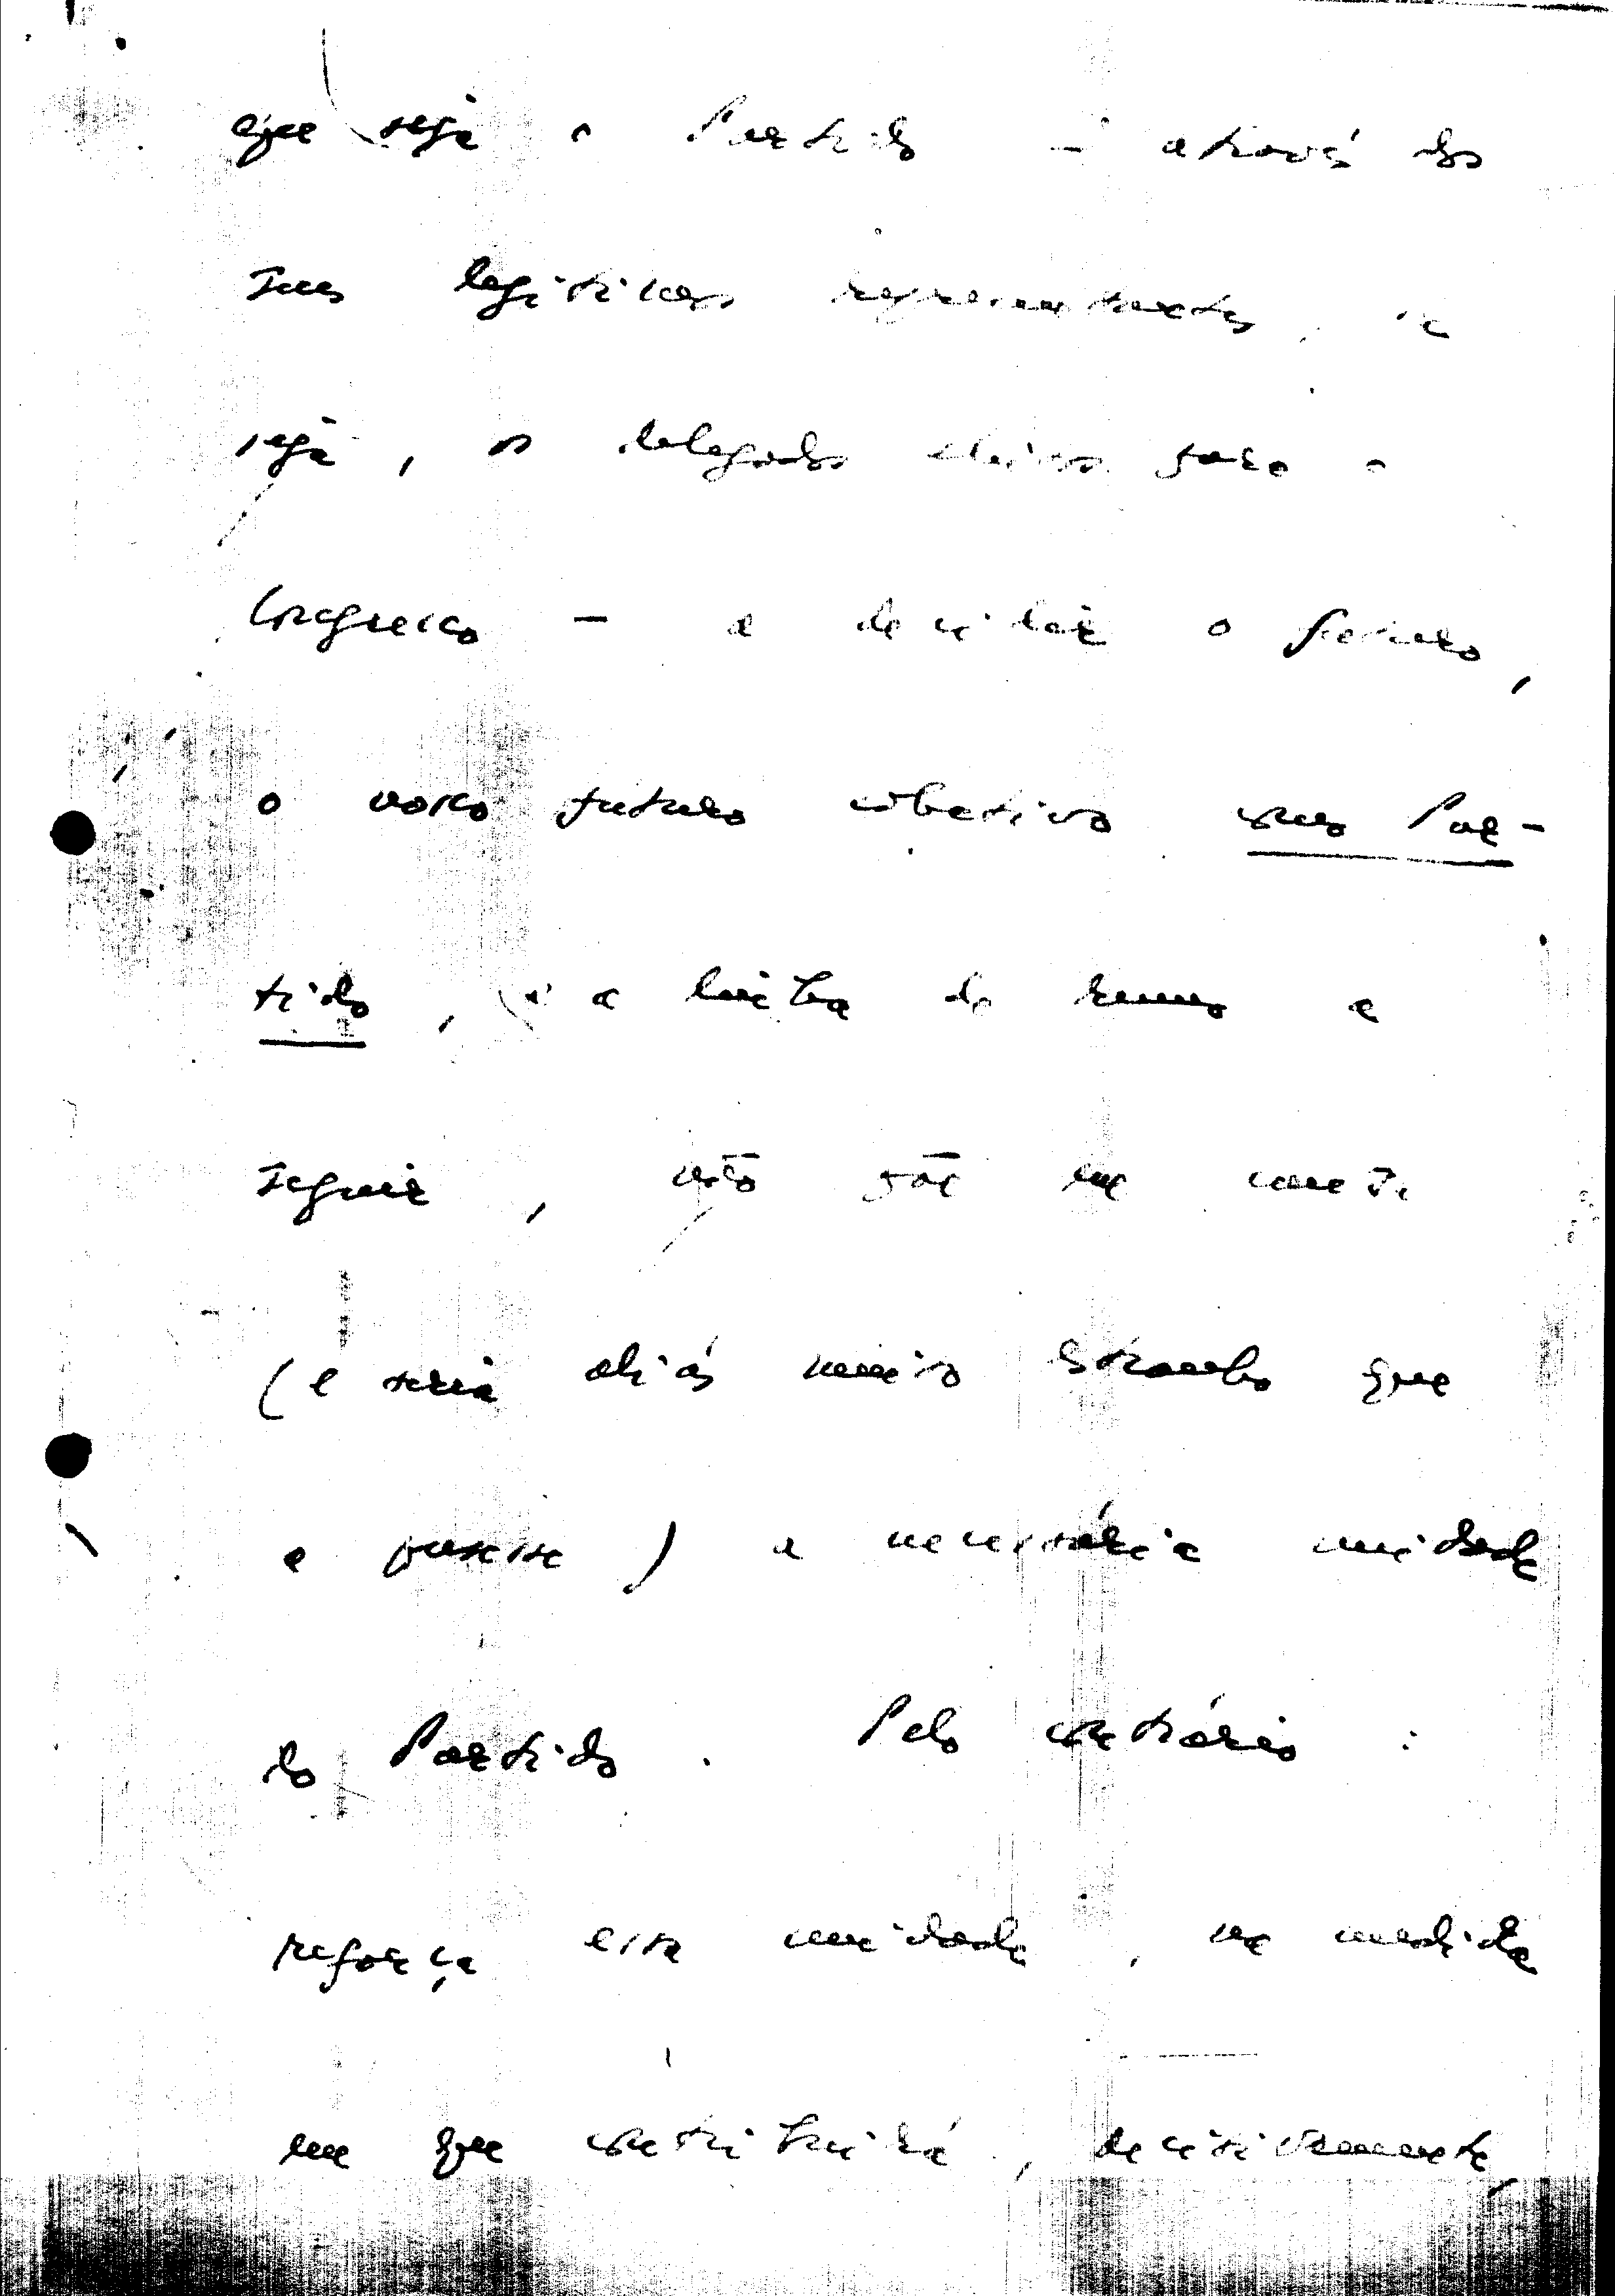 que seja o Partido – através dos
seus legítimos representantes, ou
seja, os delegados eleitos para o
Congresso – a decidir o futuro,
o nosso futuro colectivo como Par-
tido, e a linha de rumo a
seguir, não põe em causa
(e seria aliás muito estranho que
a pusesse) a necessária unidade
do Partido. Pelo contrário:
reforça essa unidade, na medida
em que contribuirá, decisivamente,